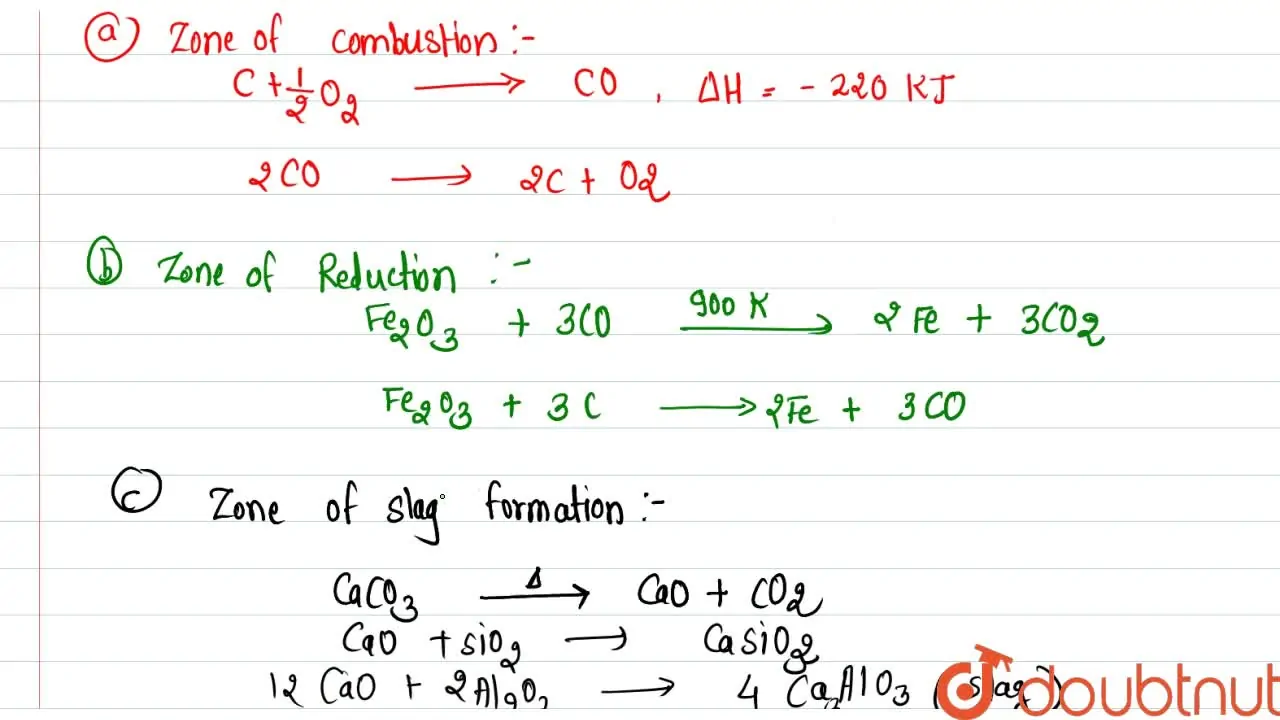 (a) Zone of combustion :-
C + 1/2 O2 ⟶ CO , ΔH = - 220 KJ
2CO ⟶ 2C + O2
(b) Zone of Reduction :-
Fe2O3 + 3CO 900 K ⟶ 2Fe + 3CO2
Fe2O3 + 3C ⟶ 2Fe + 3CO
(c) Zone of slag formation :-
CaCO3 Δ ⟶ CaO + CO2
CaO + SiO2 ⟶ CaSiO2
12 CaO + 2 ⟶ 4 (slag)
doubtnut